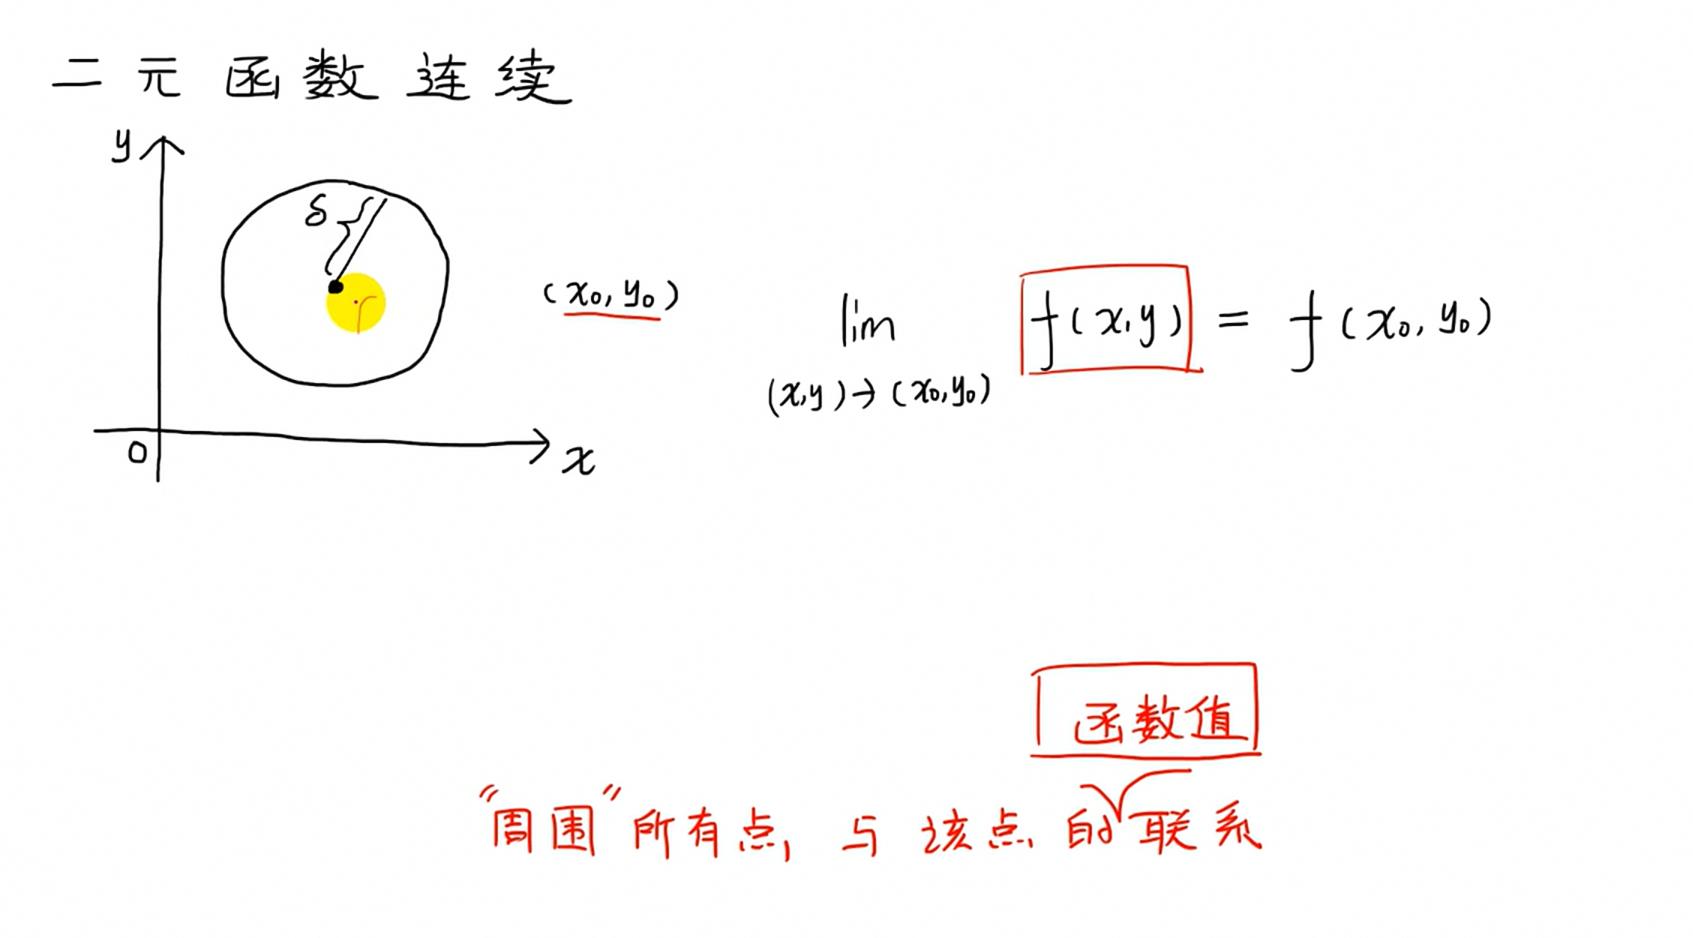 二元函数连续
y
δ
(x₀, y₀)
lim f(x,y) = f(x₀, y₀)
(x,y)→(x₀,y₀)
0
x
函数值
“周围”所有点,与该点的√联系